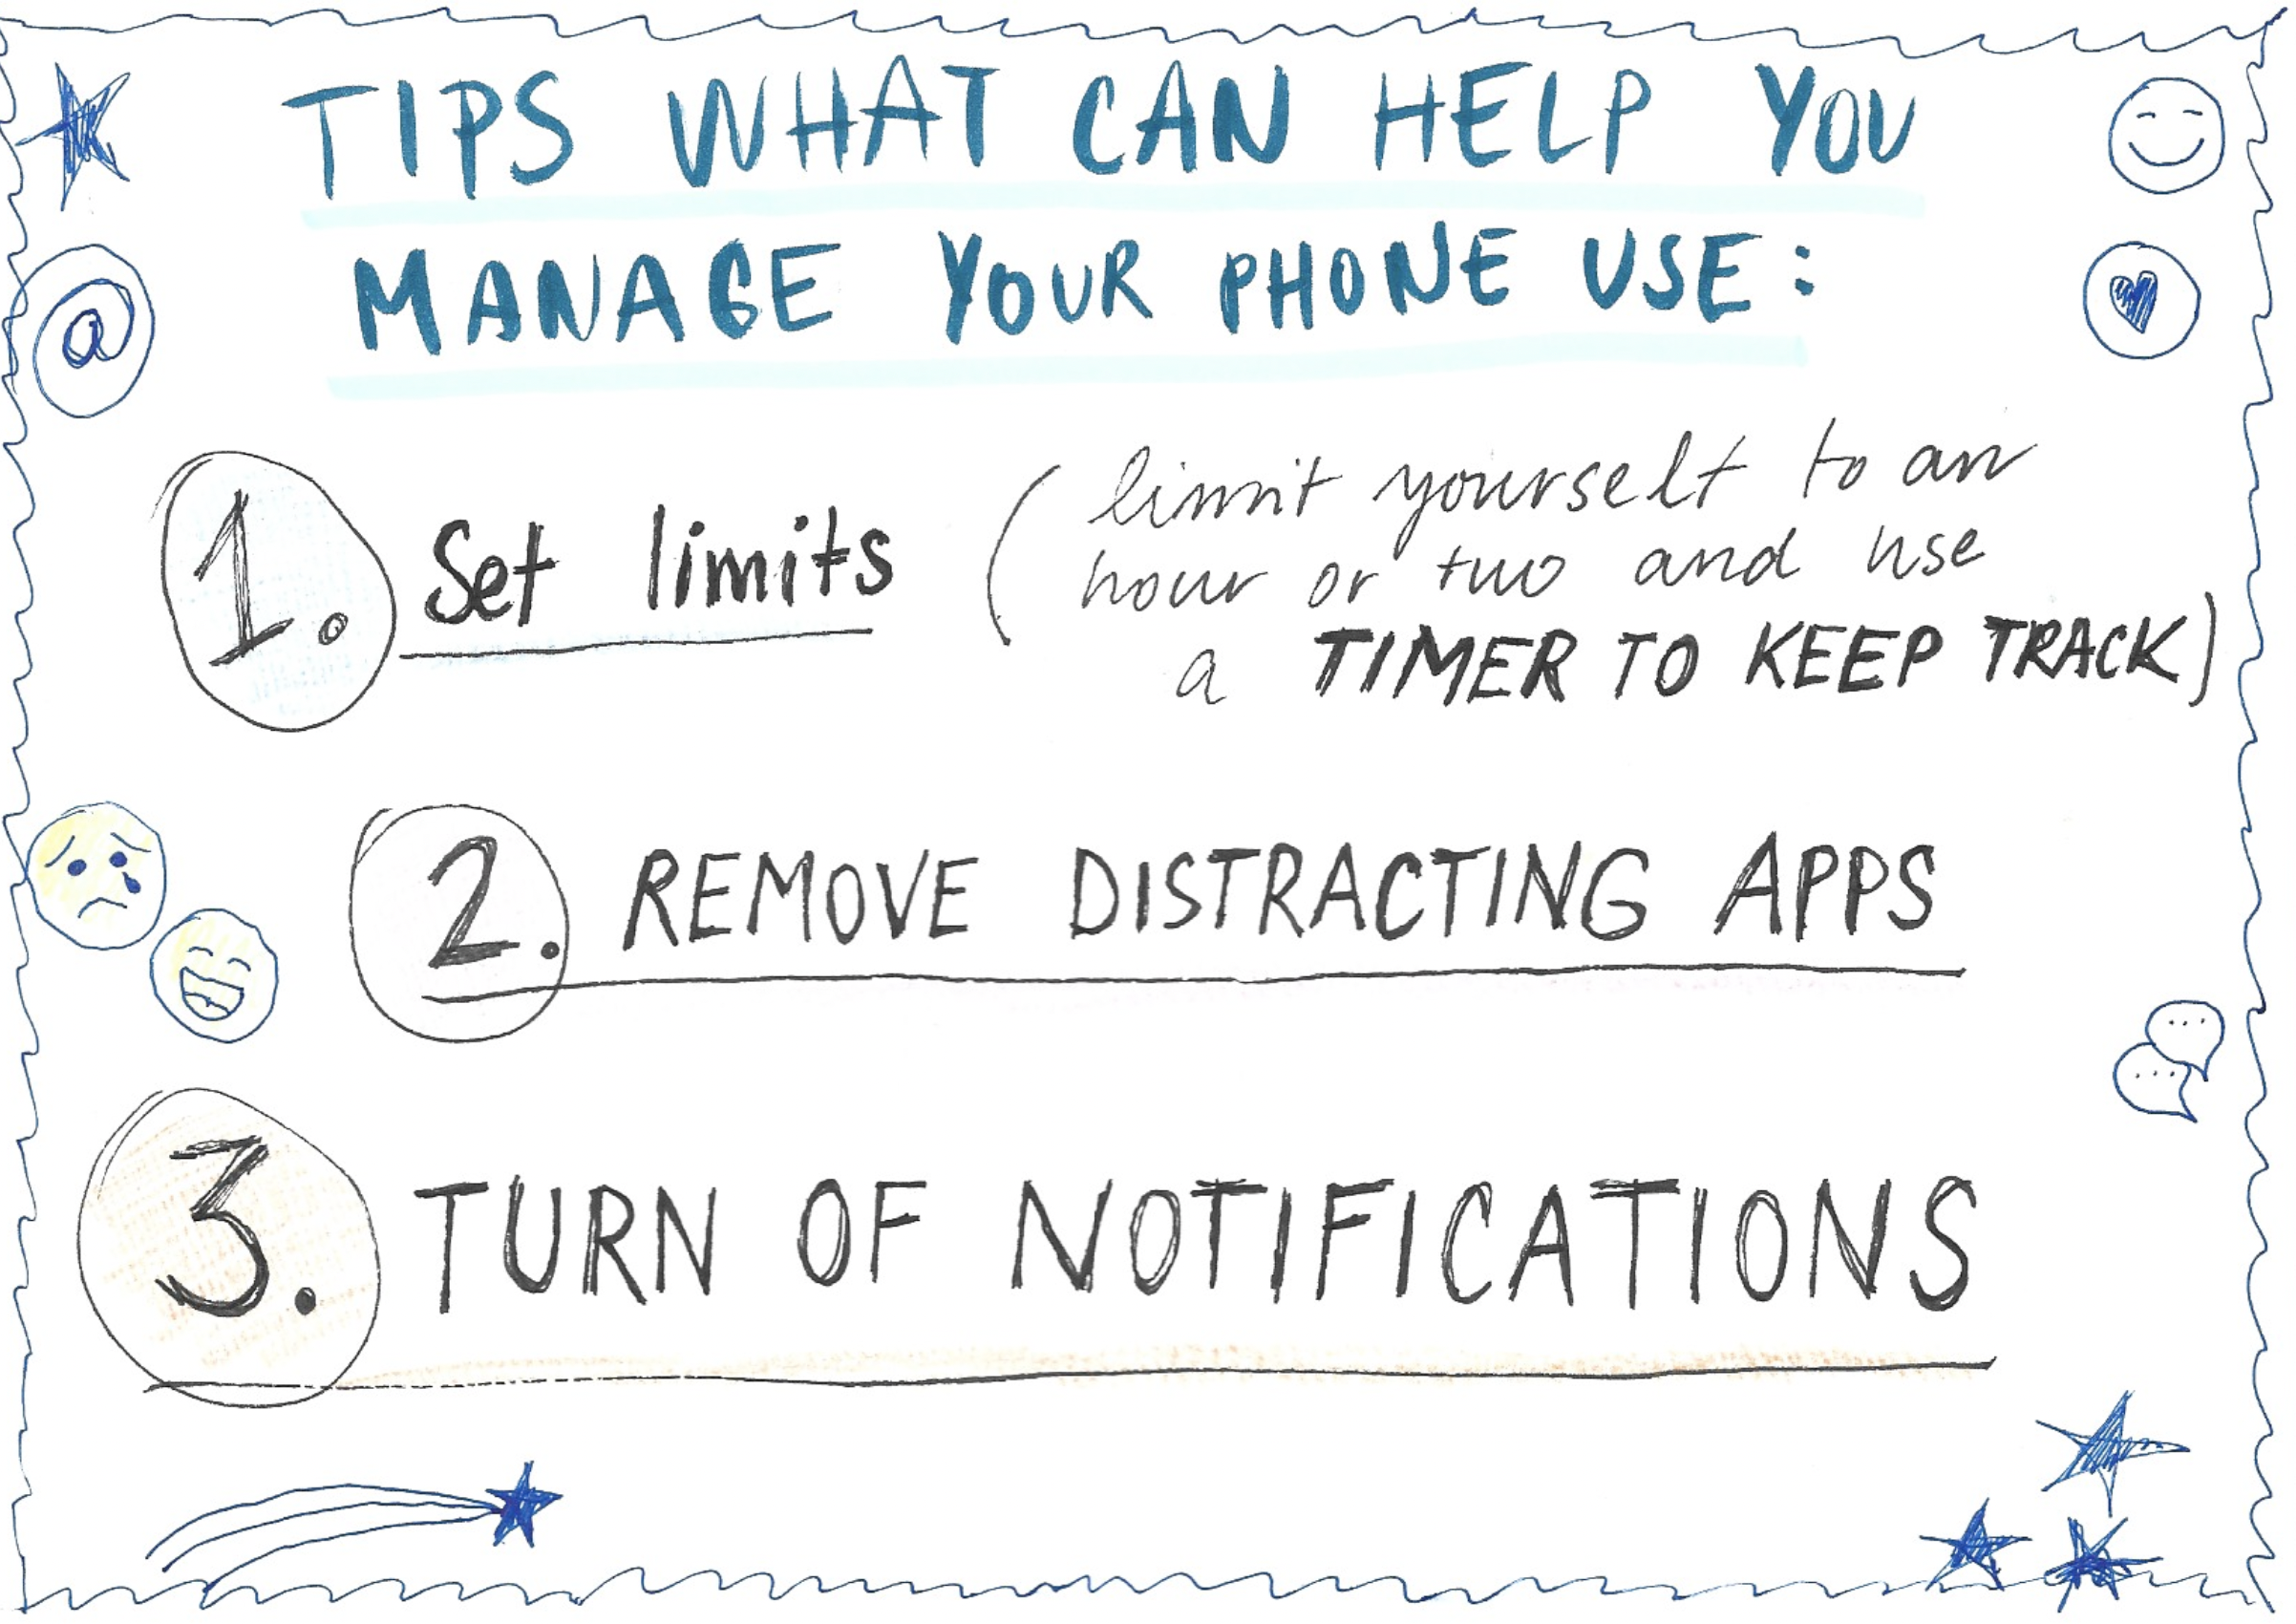 TIPS WHAT CAN HELP YOU
MANAGE YOUR PHONE USE:
1. Set limits (limit yourself to an
hour or two and use
a TIMER TO KEEP TRACK)
2. REMOVE DISTRACTING APPS
3. TURN OF NOTIFICATIONS
@